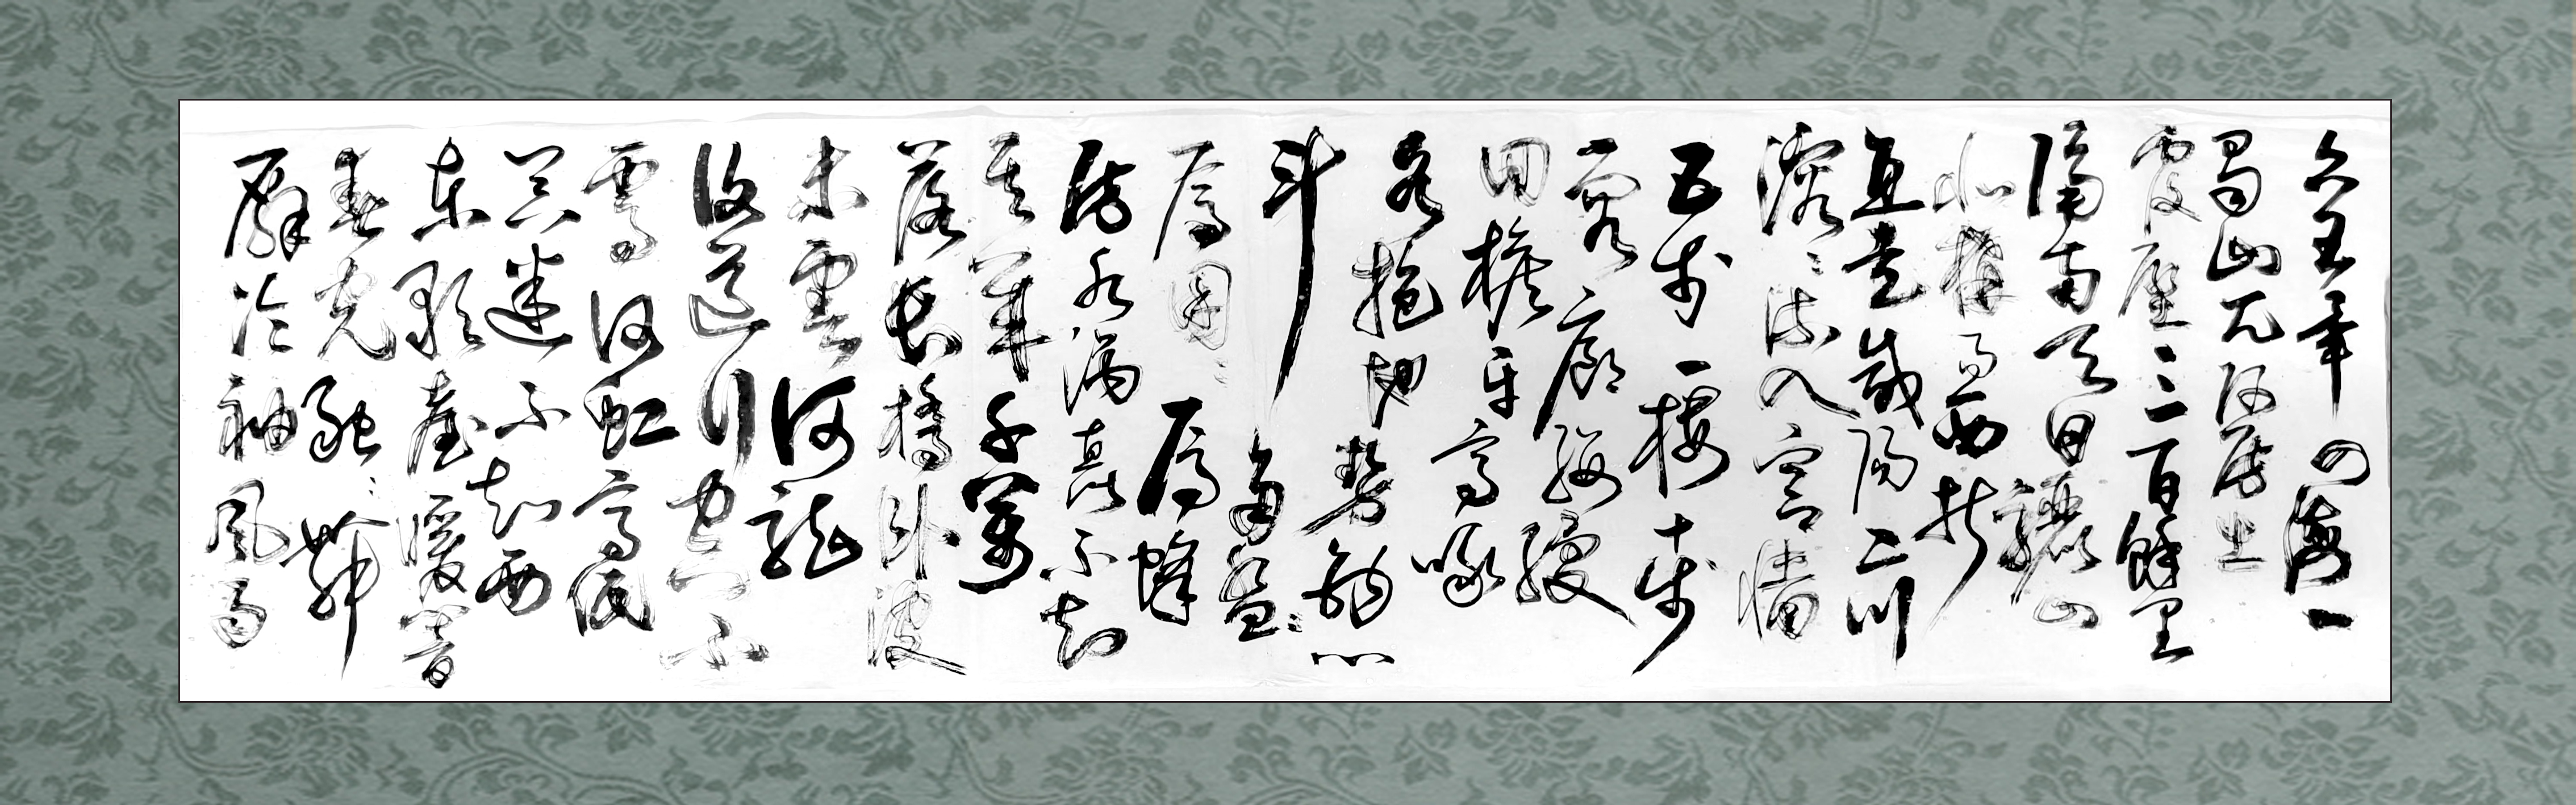 六王畢四海一
蜀山兀阿房出
覆壓三百餘里
隔離天日驪山
北構而西折
直走咸陽二川
溶溶流入宮牆
五步一樓十步
一閣廊腰縵
回檐牙高啄
各抱地勢鉤心
斗角盤盤
焉囷囷焉蜂
房水渦矗不知
其幾千萬
落長橋臥波
未雲何龍
複道行空不
霽何虹高低
冥迷不知西
東歌臺暖響
春光融融舞
殿冷袖風雨